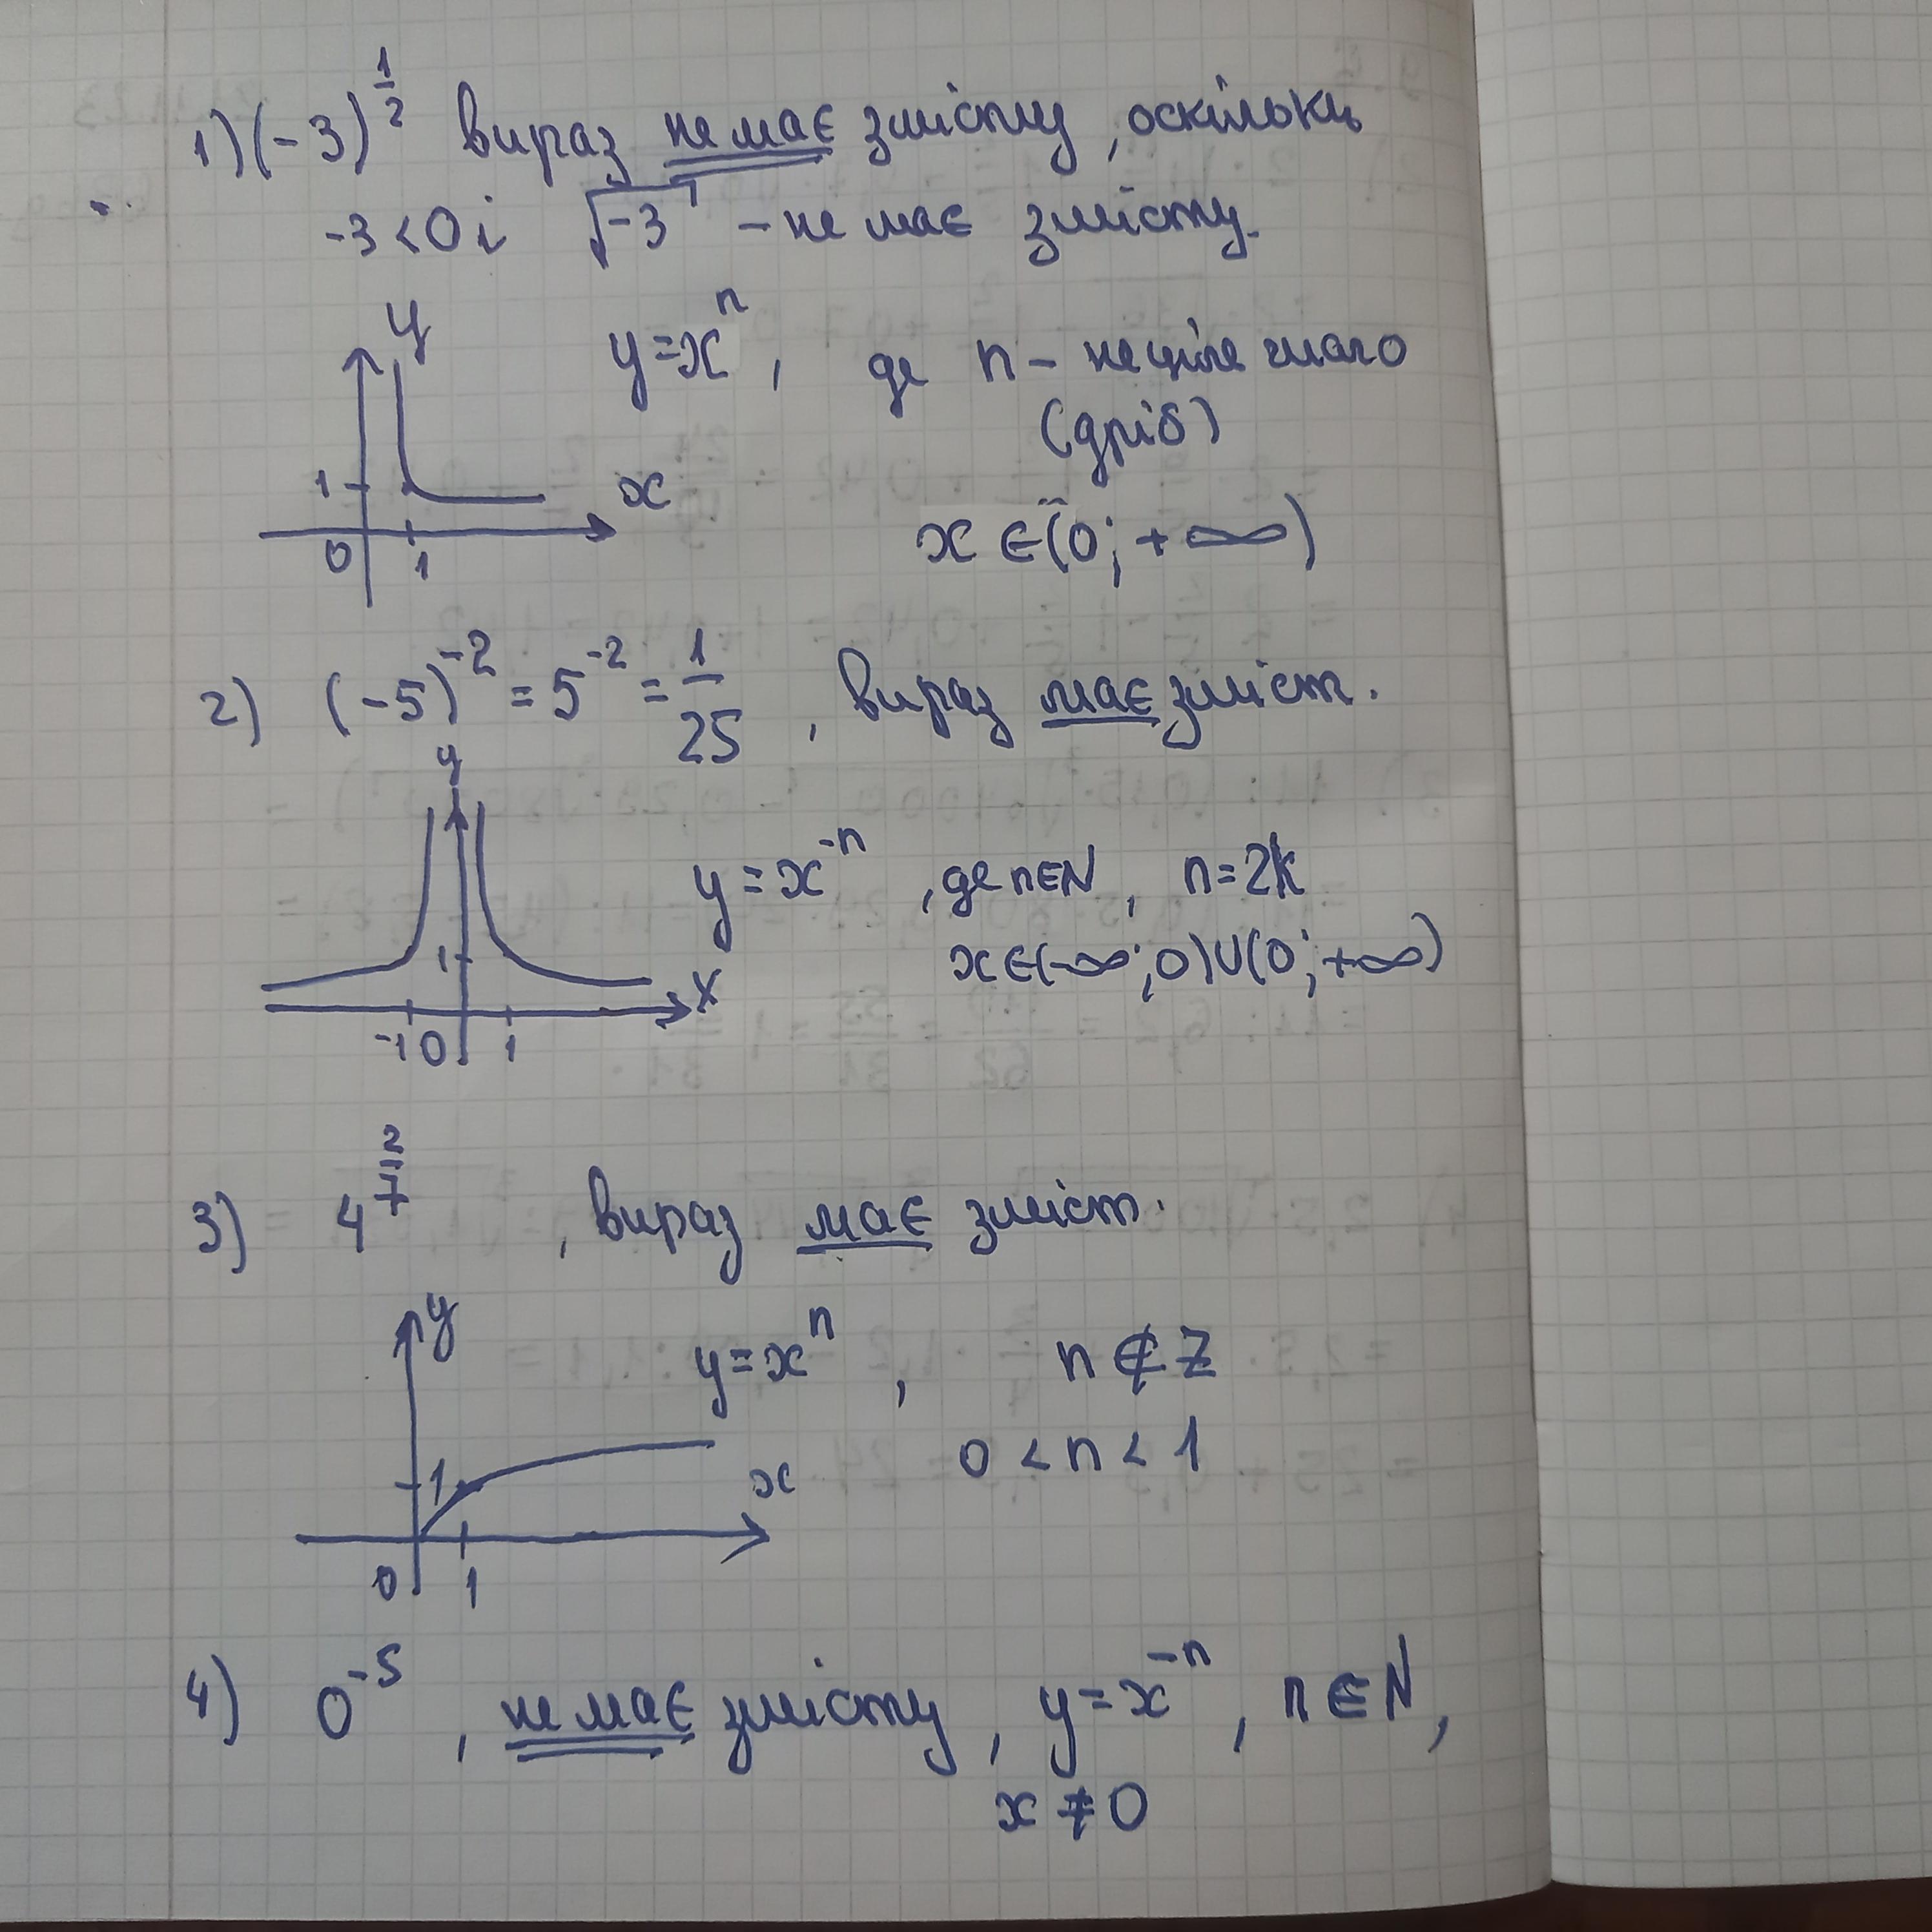 1) (-3)^{1/2} вираз не має змісту, оскільки
-3<0 і √-3 – не має змісту.
y
y=x^n, де n – не ціле число
(дріб)
1
x
x∈(0;+∞)
0 1
2) (-5)^{-2} = 5^{-2} = 1/25, вираз має зміст.
y
y=x^{-n}, де n∈N, n=2k
1
x∈(-∞;0)∪(0;+∞)
x
-1 0 1
3) 4^{2/7}, вираз має зміст.
y
y=x^n, n∉Z
0<n<1
1
x
0 1
4) 0^{-5}, не має змісту, y=x^{-n}, n∈N,
x≠0